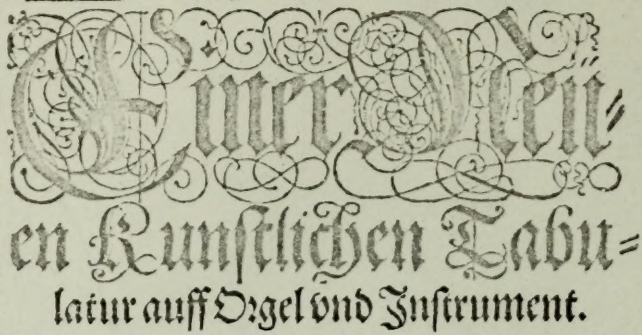 Einer Neü⸗
en Kunſtlichen Tabu⸗
latur auff Orgel vnd Inſtrument.